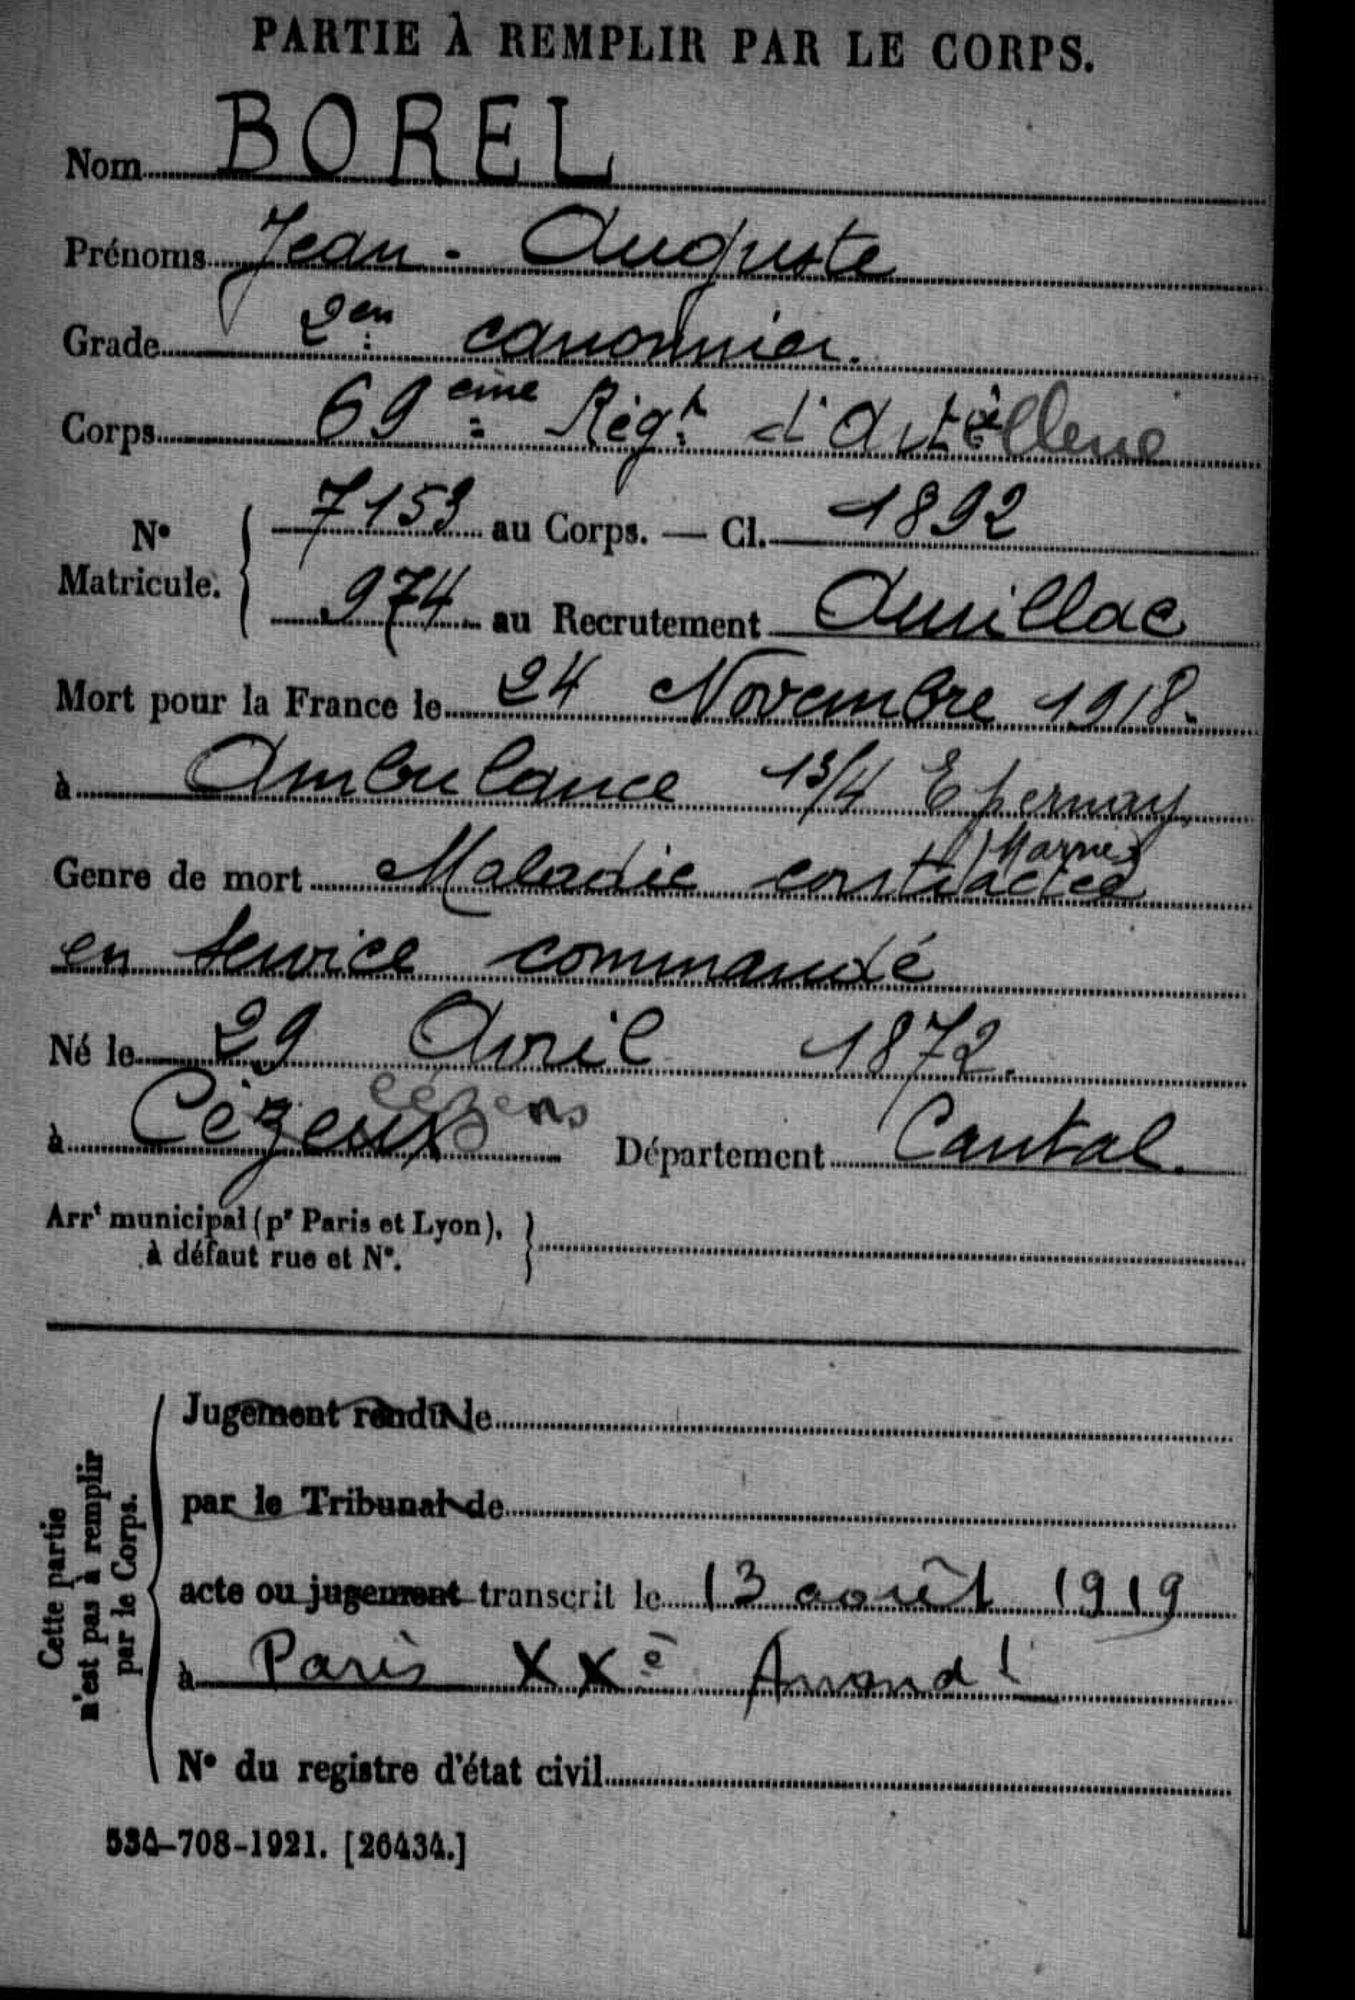 PARTIE À REMPLIR PAR LE CORPS.
Nom BOREL
Prénoms Jean - Auguste
Grade 2en canonnier.
Corps 69ème Régt d'Artillerie
N° Matricule. 7153 au Corps. — Cl. 1892
974 au Recrutement Aurillac
Mort pour la France le 24 Novembre 1918.
à Ambulance 13/4 Epernay
(Marne)
Genre de mort Maladie contractée
en service commandé
Né le 29 Avril 1872.
Cézens
à Département Cantal.
Arrt municipal (pr Paris et Lyon),
à défaut rue et N°.
Cette partie
n'est pas à remplir
par le Corps.
Jugement rendu le
par le Tribunal de
acte ou jugement transcrit le 13 août 1919
à Paris XXe Arrondt
N° du registre d'état civil
534-708-1921. [26434.]